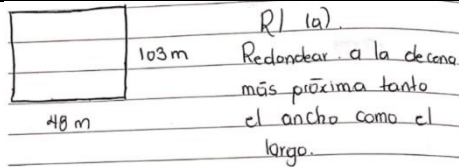 R/ (a).
103 m
Redondear a la decena
más próxima tanto
48 m
el ancho como el
largo.